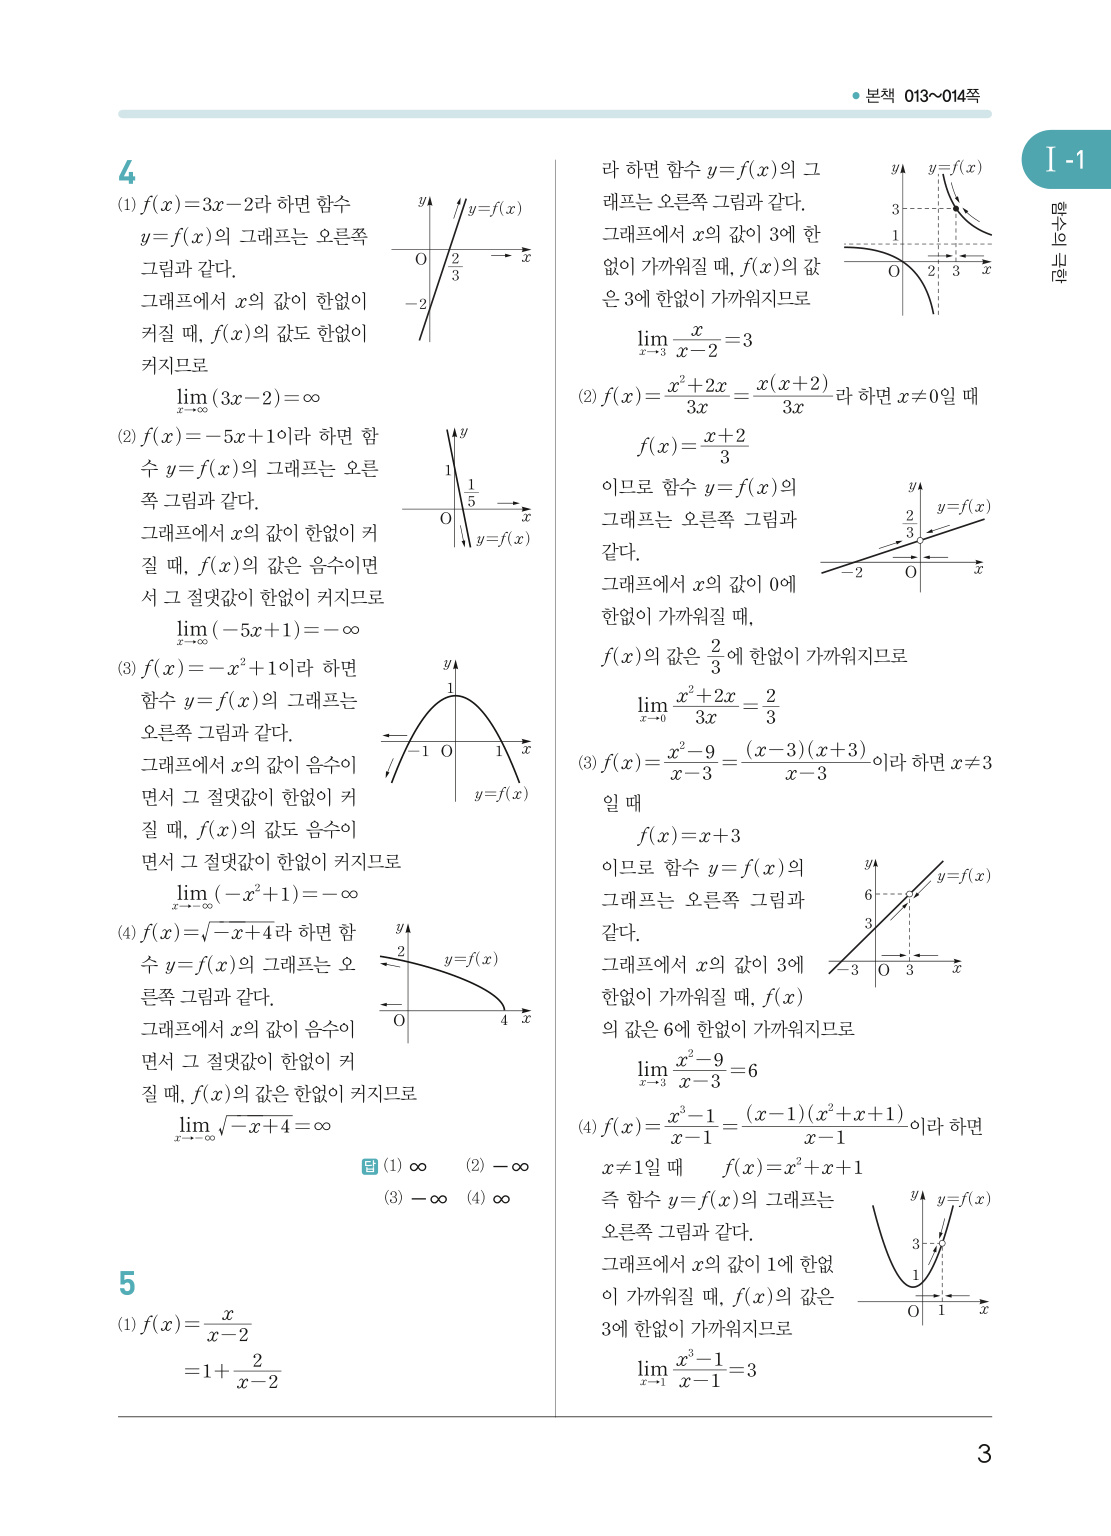 • 본책 013~014쪽
Ⅰ-1
함수의 극한
4
⑴ f(x)=3x-2라 하면 함수
y=f(x)의 그래프는 오른쪽
그림과 같다.
그래프에서 x의 값이 한없이
커질 때, f(x)의 값도 한없이
커지므로
lim_{x→∞}(3x-2)=∞
y y=f(x)
O 2/3 x
-2
⑵ f(x)=-5x+1이라 하면 함
수 y=f(x)의 그래프는 오른
쪽 그림과 같다.
그래프에서 x의 값이 한없이 커
질 때, f(x)의 값은 음수이면
서 그 절댓값이 한없이 커지므로
lim_{x→∞}(-5x+1)=-∞
y
1
1/5
O x
y=f(x)
⑶ f(x)=-x²+1이라 하면
함수 y=f(x)의 그래프는
오른쪽 그림과 같다.
그래프에서 x의 값이 음수이
면서 그 절댓값이 한없이 커
질 때, f(x)의 값도 음수이
면서 그 절댓값이 한없이 커지므로
lim_{x→-∞}(-x²+1)=-∞
y
1
-1 O 1 x
y=f(x)
⑷ f(x)=√(-x+4)라 하면 함
수 y=f(x)의 그래프는 오
른쪽 그림과 같다.
그래프에서 x의 값이 음수이
면서 그 절댓값이 한없이 커
질 때, f(x)의 값은 한없이 커지므로
lim_{x→-∞}√(-x+4)=∞
y
2 y=f(x)
O 4 x
답 ⑴ ∞ ⑵ -∞
⑶ -∞ ⑷ ∞
5
⑴ f(x)=x/(x-2)
=1+2/(x-2)
라 하면 함수 y=f(x)의 그
래프는 오른쪽 그림과 같다.
그래프에서 x의 값이 3에 한
없이 가까워질 때, f(x)의 값
은 3에 한없이 가까워지므로
lim_{x→3} x/(x-2)=3
y y=f(x)
3
1
O 2 3 x
⑵ f(x)=(x²+2x)/3x=x(x+2)/3x라 하면 x≠0일 때
f(x)=(x+2)/3
이므로 함수 y=f(x)의
그래프는 오른쪽 그림과
같다.
그래프에서 x의 값이 0에
한없이 가까워질 때,
f(x)의 값은 2/3에 한없이 가까워지므로
lim_{x→0} (x²+2x)/3x=2/3
y
2/3 y=f(x)
-2 O x
⑶ f(x)=(x²-9)/(x-3)=(x-3)(x+3)/(x-3)이라 하면 x≠3
일 때
f(x)=x+3
이므로 함수 y=f(x)의
그래프는 오른쪽 그림과
같다.
그래프에서 x의 값이 3에
한없이 가까워질 때, f(x)
의 값은 6에 한없이 가까워지므로
lim_{x→3} (x²-9)/(x-3)=6
y y=f(x)
6
3
-3 O 3 x
⑷ f(x)=(x³-1)/(x-1)=(x-1)(x²+x+1)/(x-1)이라 하면
x≠1일 때 f(x)=x²+x+1
즉 함수 y=f(x)의 그래프는
오른쪽 그림과 같다.
그래프에서 x의 값이 1에 한없
이 가까워질 때, f(x)의 값은
3에 한없이 가까워지므로
lim_{x→1} (x³-1)/(x-1)=3
y y=f(x)
3
1
O 1 x
3